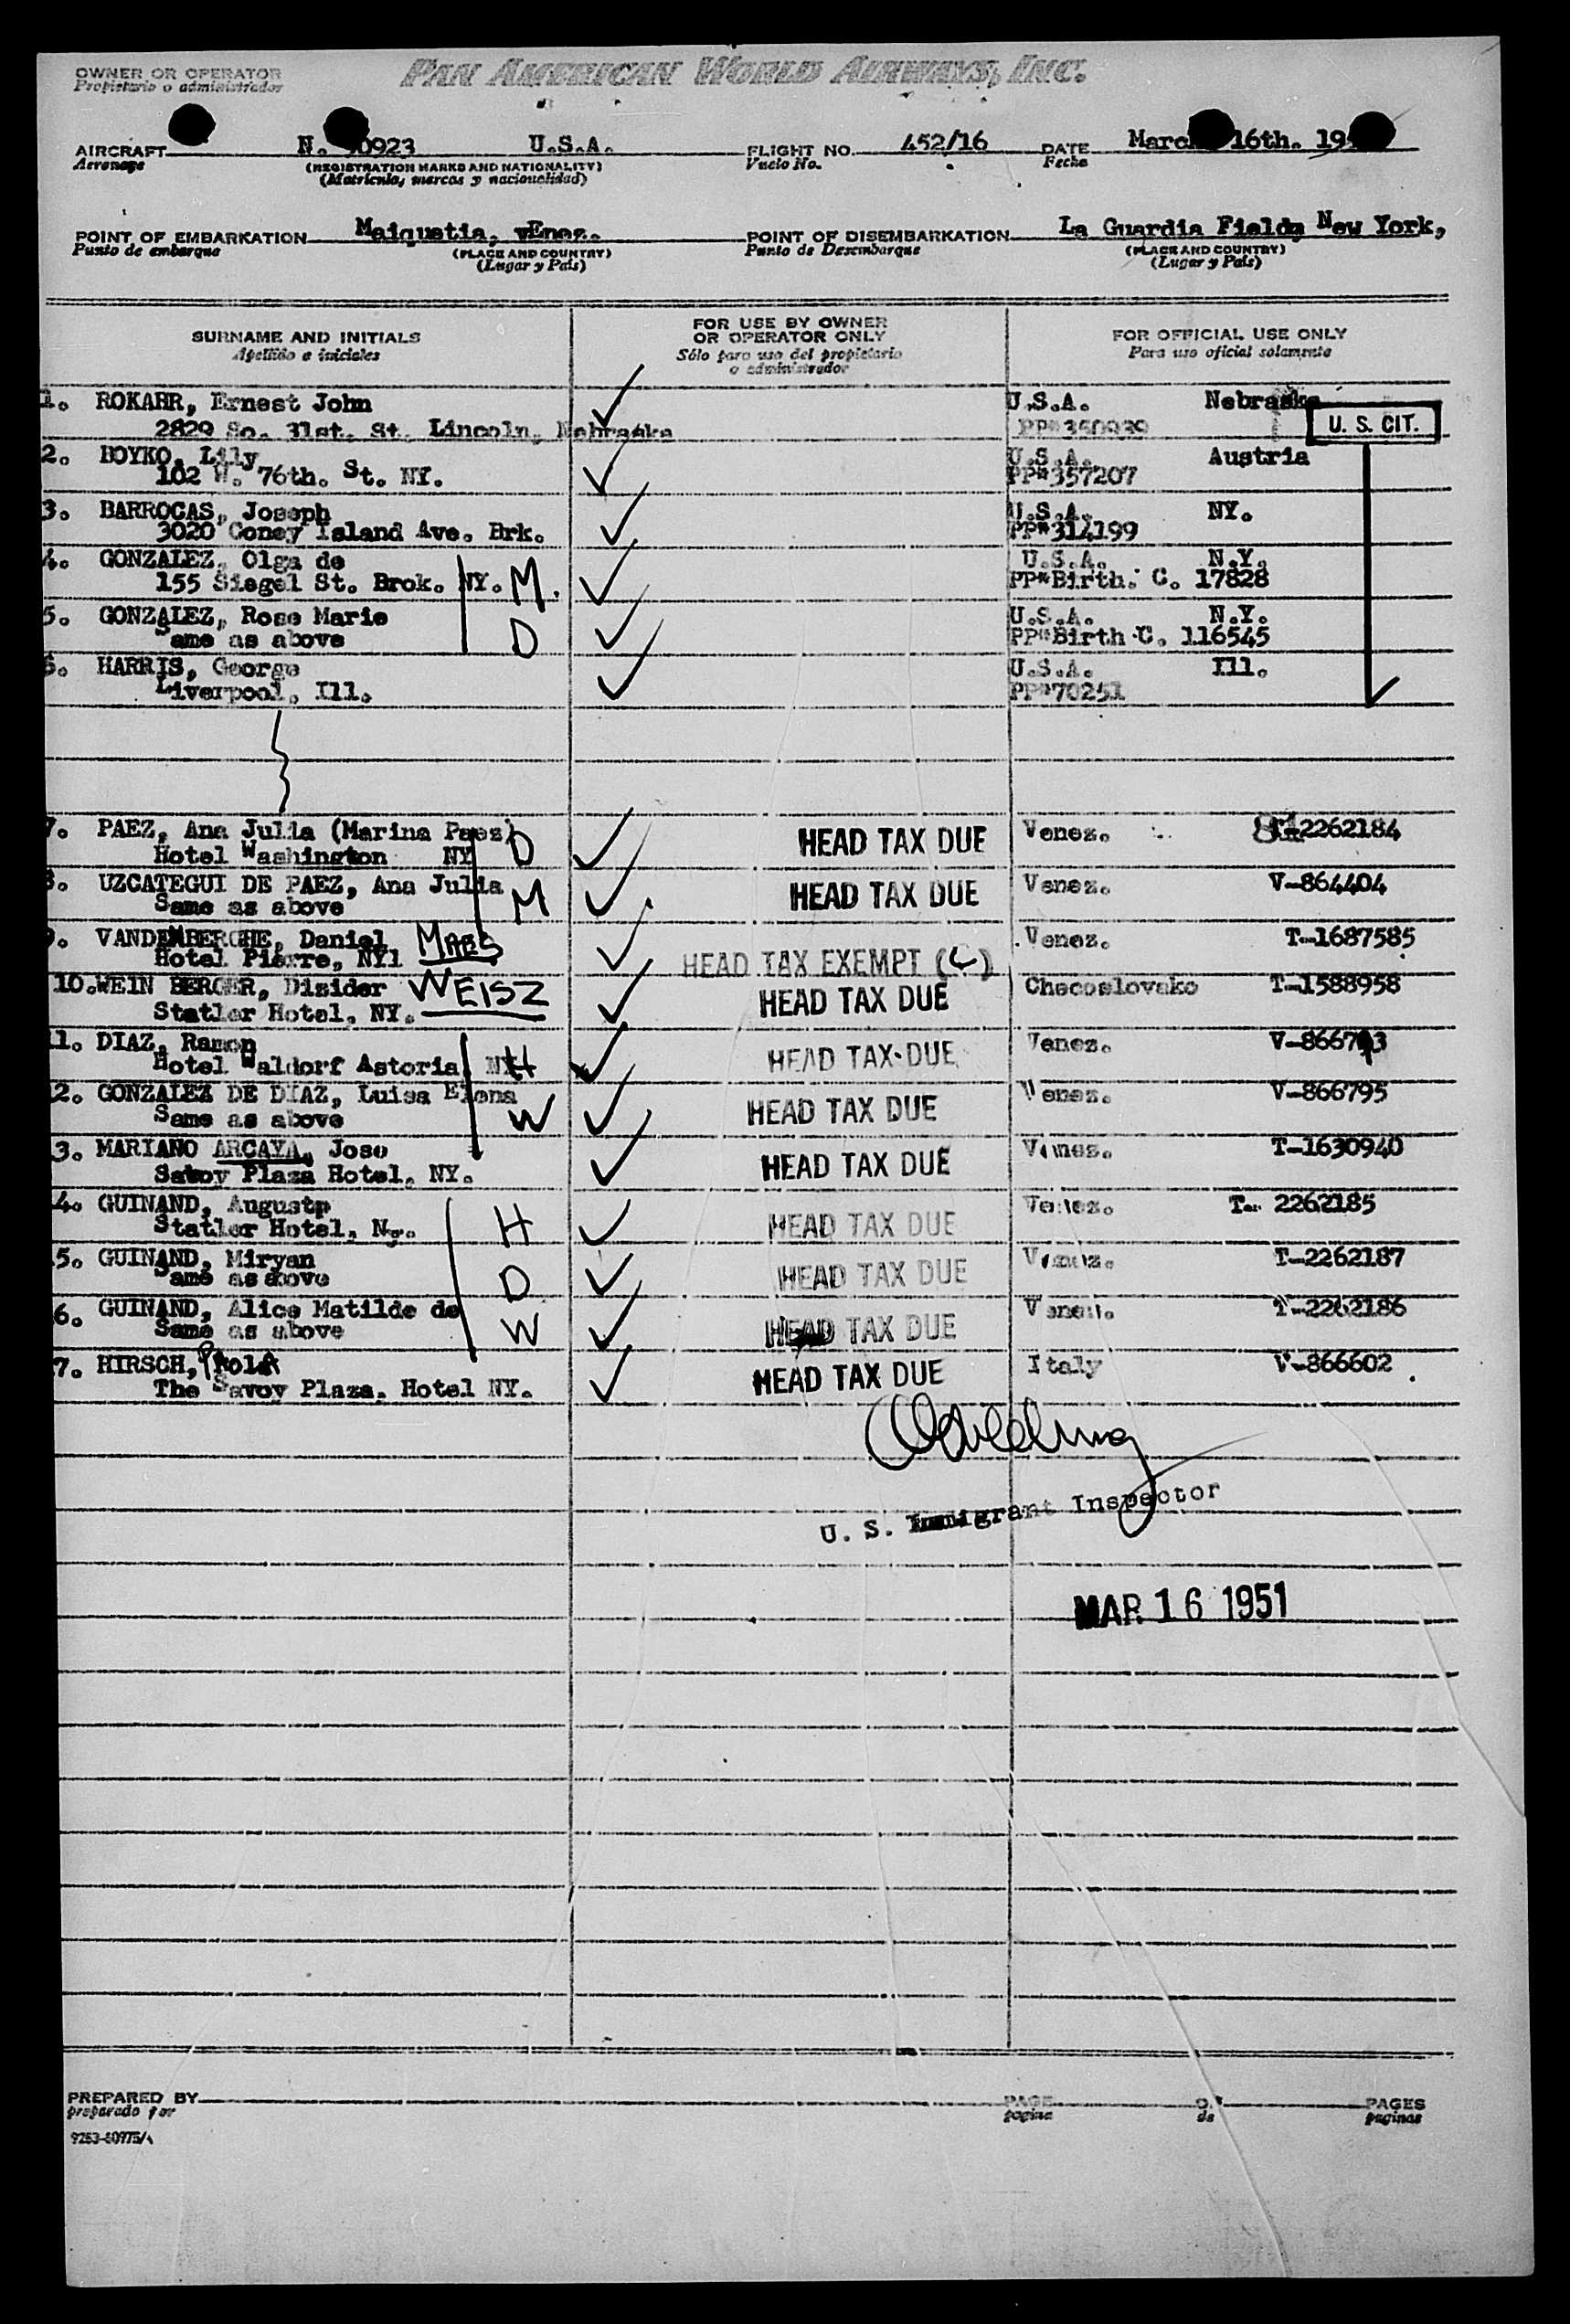 OWNER OR OPERATOR
Propietario o administrador
PAN AMERICAN WORLD AIRWAYS, INC.
AIRCRAFT N. 0923 U.S.A. FLIGHT NO. 452/16 DATE 16th. 19
Aeronave (REGISTRATION MARKS AND NATIONALITY) Vuelo No. Fecha
(Matricula, marcas y nacionalidad)
POINT OF EMBARKATION Maiquetia, vEnez. POINT OF DISEMBARKATION La Guardia Field, New York,
Punto de embarque (PLACE AND COUNTRY) Punto de Desembarque (PLACE AND COUNTRY)
(Lugar y País) (Lugar y País)
SURNAME AND INITIALS FOR USE BY OWNER OR OPERATOR ONLY FOR OFFICIAL USE ONLY
Apellido e iniciales Sólo para uso del propietario o administrador Para uso oficial solamente
1. ROKAHR, Ernest John U.S.A. Nebraska
2829 So. 31st. St. Lincoln, Nebraska U. S. CIT.
2. BOYKO, Lily U.S.A. Austria
102 W. 76th. St. NY. PP#357207
3. BARROCAS, Joseph U.S.A. NY.
3020 Coney Island Ave. Brk. PP#314199
4. GONZALEZ, Olga de U.S.A. N.Y.
155 Siegel St. Brok. NY. M. PP#Birth. C. 17828
5. GONZALEZ, Rose Marie U.S.A. N.Y.
Same as above D PP#Birth C. 116545
6. HARRIS, George U.S.A. Ill.
Liverpool, Ill. PP#70251
7. PAEZ, Ana Julia (Marina Paez) D HEAD TAX DUE Venez. T-2262184
Hotel Washington NY
8. UZCATEGUI DE PAEZ, Ana Julia M HEAD TAX DUE Venez. V-864404
Same as above
9. VANDENBERGHE, Daniel MAES Venez. T-1687585
Hotel Pierre, NY1 HEAD TAX EXEMPT (C)
10. WEIN BERGER, Disider WEISZ HEAD TAX DUE Checoslovako T-1588958
Statler Hotel, NY.
11. DIAZ, Ramon HEAD TAX DUE Venez. V-866793
Hotel Waldorf Astoria NY H
2. GONZALEZ DE DIAZ, Luisa Elena HEAD TAX DUE Venez. V-866795
Same as above W
3. MARIANO ARCAYA, Jose HEAD TAX DUE Venez. T-1630940
Savoy Plaza Hotel, NY.
4. GUINAND, Augusto H HEAD TAX DUE Venez. T- 2262185
Statler Hotel, Ny.
5. GUINAND, Miryan D HEAD TAX DUE Venez. T-2262187
Same as above
6. GUINAND, Alice Matilde de W HEAD TAX DUE Venez. T-2262186
Same as above
7. HIRSCH, PAOLA HEAD TAX DUE Italy V-866602
The Savoy Plaza, Hotel NY.
U. S. Immigrant Inspector
MAR 16 1951
PREPARED BY PAGE OF PAGES
preparado por pagina de paginas